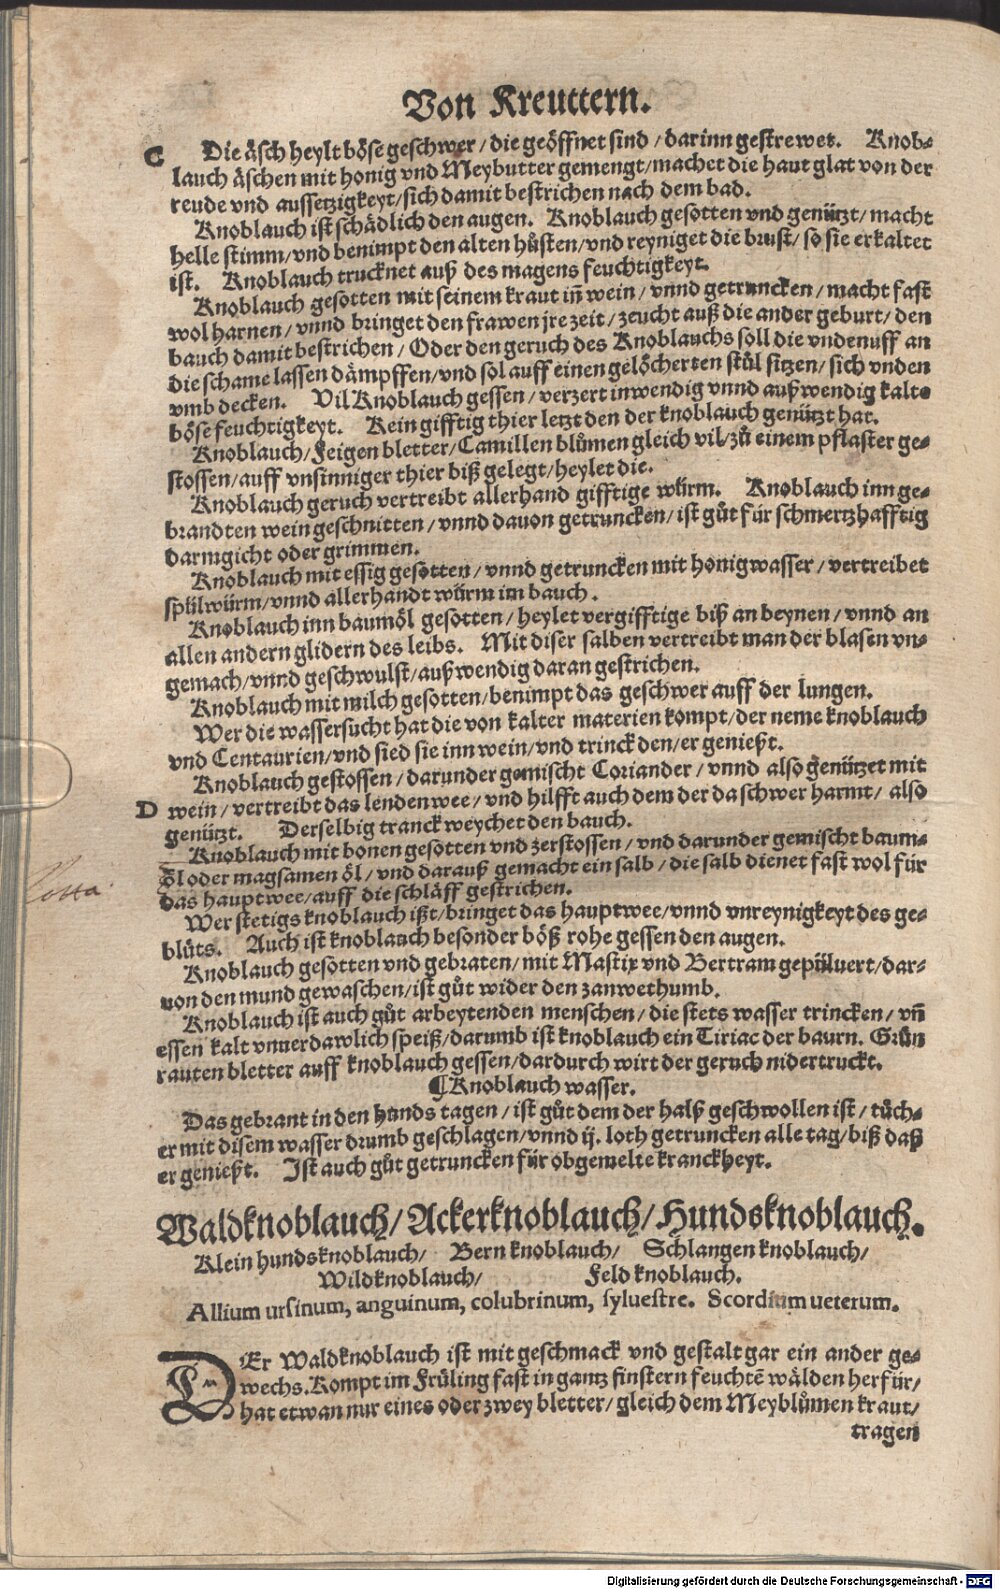 Von Kreuttern.
C Die äsch heylt böse geschwer / die geöffnet sind / darinn gestrewet. Knob-
lauch äschen mit honig vnd Meybutter gemengt/machet die haut glat von der
reude vnd aussetzigkeyt/sich damit bestrichen nach dem bad.
Knoblauch ist schädlich den augen. Knoblauch gesotten vnd genützt/macht
helle stimm/vnd benimpt den alten hůsten/vnd reyniget die brust/so sie erkaltet
ist. Knoblauch trucknet auß des magens feuchtigkeyt.
Knoblauch gesotten mit seinem kraut iñ wein / vnnd getruncken / macht fast
wol harnen / vnnd bringet den frawen jre zeit / zeucht auß die ander geburt / den
bauch damit bestrichen / Oder den geruch des Knoblauchs soll die vndenuff an
die schame lassen dämpffen/vnd sol auff einen gelöcherten stůl sitzen/sich vnden
vmb decken. Vil Knoblauch gessen / verzert inwendig vnnd außwendig kalte
böse feuchtigkeyt. Kein gifftig thier letzt den der knoblauch genützt hat.
Knoblauch/Feigen bletter/Camillen blůmen gleich vil/zů einem pflaster ge-
stossen/auff vnsinniger thier biß gelegt/heylet die.
Knoblauch geruch vertreibt allerhand gifftige würm. Knoblauch inn ge-
brandten wein geschnitten / vnnd dauon getruncken / ist gůt für schmertzhafftig
darmgicht oder grimmen.
Knoblauch mit essig gesotten / vnnd getruncken mit honigwasser / vertreibet
spülwürm/vnnd allerhandt würm im bauch.
Knoblauch inn baumöl gesotten / heylet vergifftige biß an beynen / vnnd an
allen andern glidern des leibs. Mit diser salben vertreibt man der blasen vn-
gemach/vnnd geschwulst/außwendig daran gestrichen.
Knoblauch mit milch gesotten/benimpt das geschwer auff der lungen.
Wer die wassersucht hat die von kalter materien kompt/der neme knoblauch
vnd Centaurien/vnd sied sie inn wein/vnd trinck den/er genießt.
Knoblauch gestossen / darunder gemischt Coriander / vnnd also genützet mit
D wein / vertreibt das lendenwee / vnd hilfft auch dem der da schwer harmt / also
genützt. Derselbig tranck weychet den bauch.
Knoblauch mit bonen gesotten vnd zerstossen / vnd darunder gemischt baum-
öl oder magsamen öl / vnd darauß gemacht ein salb / die salb dienet fast wol für
das hauptwee/auff die schläff gestrichen.
Wer stetigs knoblauch ißt/bringet das hauptwee/vnnd vnreynigkeyt des ge-
blüts. Auch ist knoblauch besonder böß rohe gessen den augen.
Knoblauch gesotten vnd gebraten/mit Mastix vnd Bertram gepüluert/dar-
uon den mund gewaschen/ist gůt wider den zanwethumb.
Knoblauch ist auch gůt arbeytenden menschen / die stets wasser trincken / vñ
essen kalt vnuerdawlich speiß/darumb ist knoblauch ein Tiriac der baurn. Grün
rauten bletter auff knoblauch gessen/dardurch wirt der geruch nidertruckt.
¶Knoblauch wasser.
Das gebrant in den hunds tagen / ist gůt dem der halß geschwollen ist / tůch-
er mit disem wasser drumb geschlagen/vnnd ij. loth getruncken alle tag/biß daß
er genießt. Ist auch gůt getruncken für obgemelte kranckheyt.
Waldknoblauch/Ackerknoblauch/Hundsknoblauch.
Klein hundsknoblauch/ Bern knoblauch/ Schlangen knoblauch/
Wildknoblauch/ Feld knoblauch.
Allium ursinum, anguinum, colubrinum, sylvestre. Scordium ueterum.
DEr Waldknoblauch ist mit geschmack vnd gestalt gar ein ander ge-
wechs. Kompt im Früling fast in gantz finstern feuchtē wälden herfür/
hat etwan nur eines oder zwey bletter / gleich dem Meyblůmen kraut/
tragen
Digitalisierung gefördert durch die Deutsche Forschungsgemeinschaft - DFG